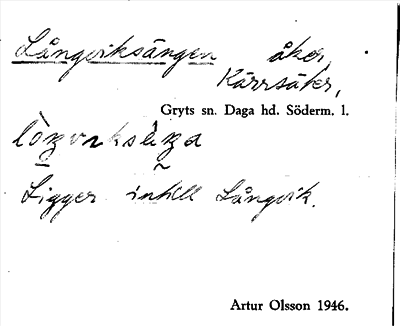 Långviksängen åker,
Kärrsäter,
Gryts sn. Daga hd. Söderm. l.
Ligger intill Långvik.
Artur Olsson 1946.